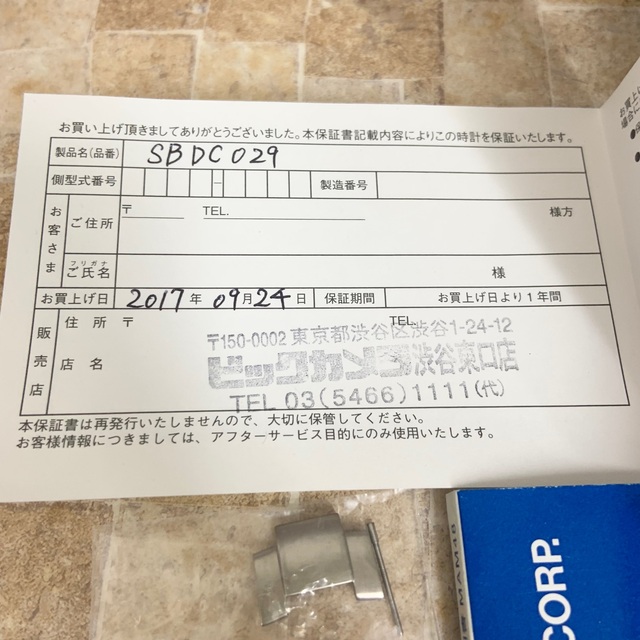 お買い上げ頂きましてありがとうございました。本保証書記載内容によりこの時計を保証いたします。
製品名(品番) SBDC029
側型式番号 – 製造番号
お客さま
ご住所 〒 TEL. 様方
フリガナ
ご氏名 様
お買上げ日 2017年 09月24日 保証期間 お買上げ日より1年間
販売店
住所 〒 TEL.
〒150-0002 東京都渋谷区渋谷1-24-12
店名 ビックカメラ渋谷東口店
TEL 03(5466)1111(代)
本保証書は再発行いたしませんので、大切に保管してください。
お客様情報につきましては、アフターサービス目的にのみ使用いたします。
お買上げ
CORP.